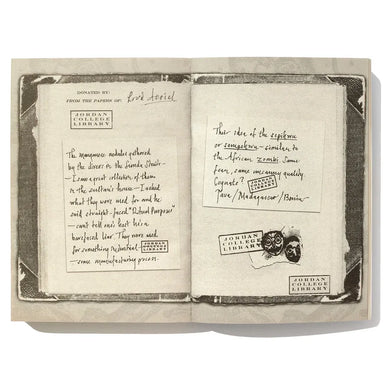 DONATED BY:
FROM THE PAPERS OF: Lord Asriel
JORDAN
COLLEGE
LIBRARY
The manganese nodules gathered
by the divers in the Sunda Straits –
– Some great collectors of them
in the sultan's house – I asked
what they were used for and he
said straight-faced "Ritual Purposes"
– can't tell one's host he's a
barefaced liar. They were used
for something industrial
– some manufacturing process.
JORDAN
COLLEGE
LIBRARY
This idea of the
or – similar to
the African zombi. Same
fear, same uncanny quality.
Cognate?
Java / Madagascar / Benin –
JORDAN
COLLEGE
LIBRARY
JORDAN
COLLEGE
LIBRARY
JORDAN
COLLEGE
LIBRARY